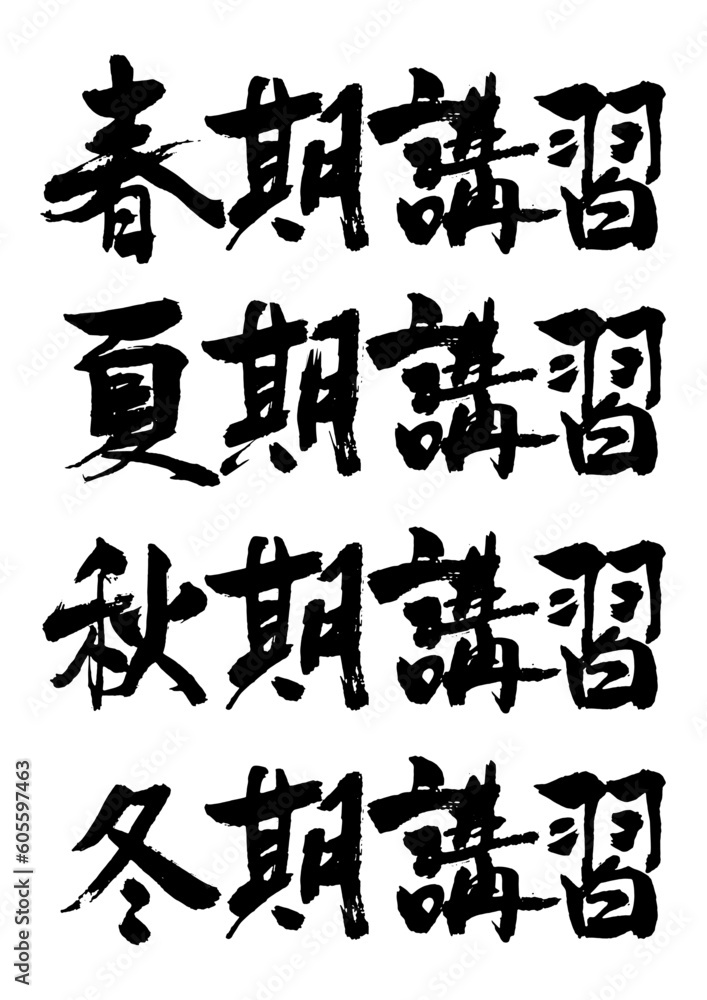 春期講習
夏期講習
秋期講習
冬期講習
Adobe Stock | #605597463